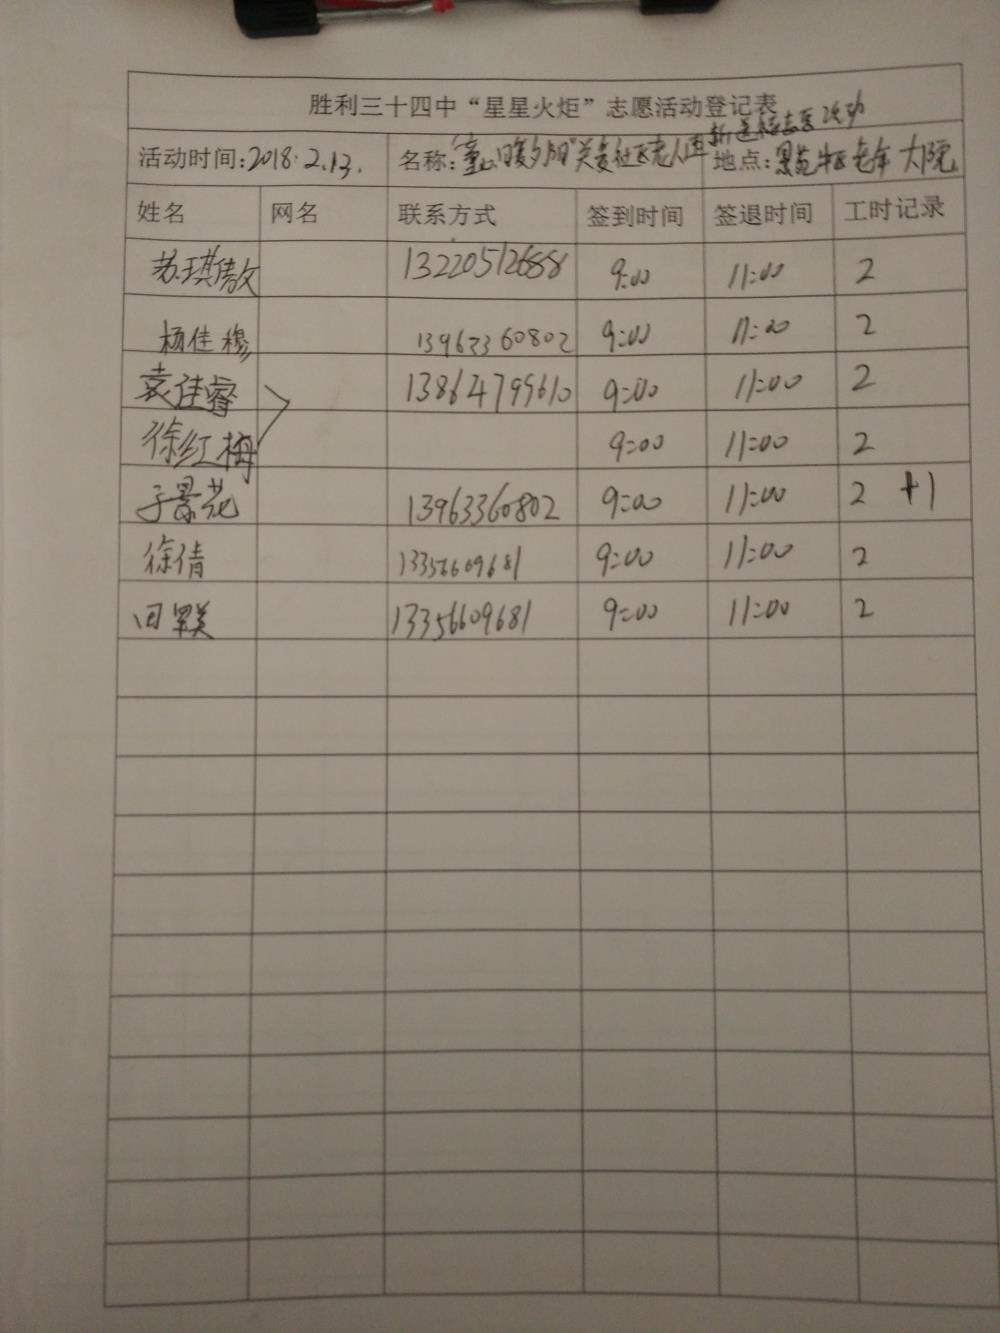 胜利三十四中“星星火炬”志愿活动登记表
活动时间:2018.2.13. 名称:童心暖夕阳"关爱社区老人 地点:景苑 老年大院
姓名 网名 联系方式 签到时间 签退时间 工时记录
苏琪傲 13220512688 9:00 11:00 2
杨佳穆 13963360802 9:00 11:00 2
袁佳睿 13864799610 9:00 11:00 2
徐红梅 9:00 11:00 2
于景花 13963360802 9:00 11:00 2 +1
徐倩 13356609681 9:00 11:00 2
田 13356609681 9:00 11:00 2